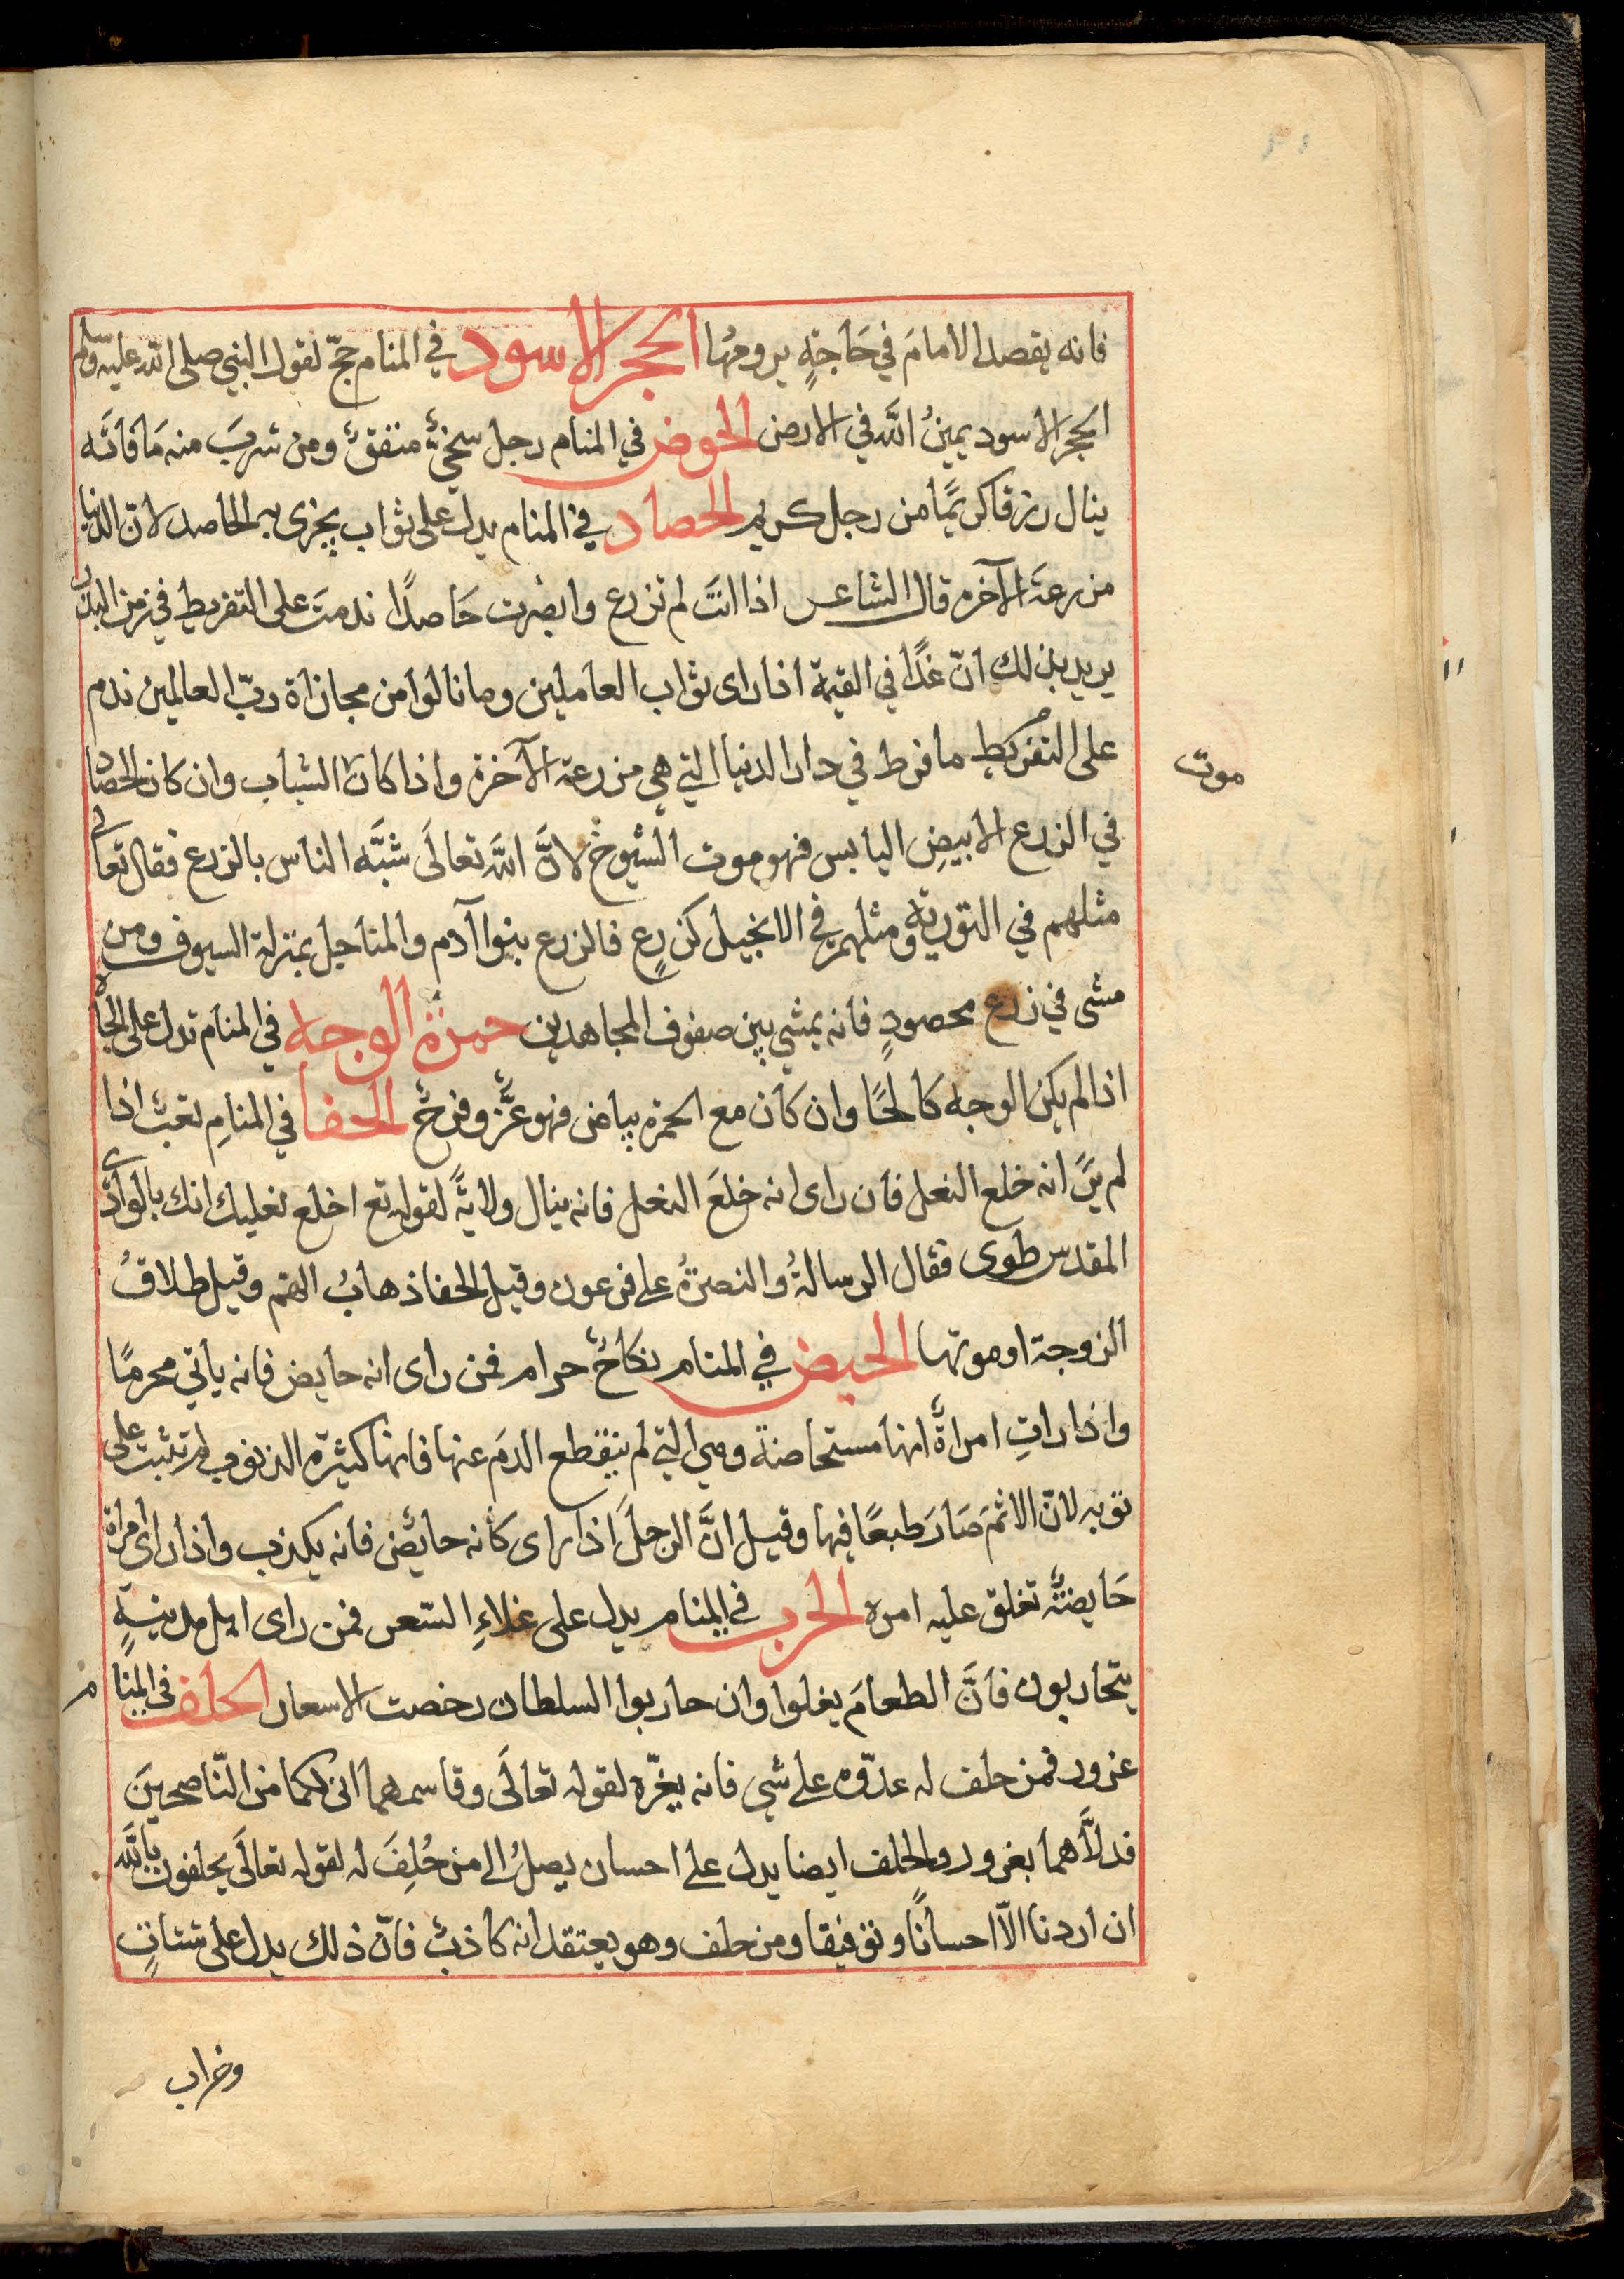 فانه يقصد الامامَ في حَاجةٍ يرومُها الحجر الاسود في المنام حجّ لقول النبي صلى الله عليه وسلم
الحجر الاسود يمينُ اللَّه في الارض الحوض في المنام رجل سخيٌّ منفقٌ ومن شربَ منه مَا فانَّه
ينال رزقا كريمًا من رجل كريم الحصاد في المنام يدل على ثواب يجزى به الحاصد لانّ الدنيا
مزرعَة الآخرة قال الشاعر اذا انتَ لم تزرع وابصَرت حَاصدًا ندمتَ على التفريط في زمن البذر
يريد بذلك انّ غدًا في القيمة اذا راى ثواب العاملين وما نالوا من مجازاة ربّ العالمين ندم
على التفريط ما فرط في دار الدنيا التي هي مزرعة الآخرة واذا كان الشباب وان كان الحصاد
موت
في الزرع الابيضِ اليابس فهو موت الشيوخ لانَّ اللَّه تعالَى شبَّه الناس بالزرع فقال تعالى
مثلهم في التورية ومثلهم في الانجيل كزرعٍ فالزرع بنوا آدم والمناجيل بمنزلة السيوف ومن
مشى في زرع محصودٍ فانه يمشي بين صفوف المجاهدين حمرة الوجه في المنام تدل على الجاه
اذا لم يكن الوجه كَالحًا وان كَان مع الحمرة بياض فهو عزٌّ وفرحٌ الحفا في المنامِ تعبٌ اذا
لم يَرَ انه خلع النعل فان راى انه خلعَ النعل فانه ينال ولايةً لقوله تع اخلع نعليك انك بالوادى
المقدس طوى فقال الرسالةُ والنصرةُ على فرعون وقيل الحفا ذهابُ الهم وقيل طلاقُ
الزوجة او موتها الحيض في المنام نكاحٌ حرام فمن راى انه حايض فانه ياتي محرمًا
واذا راتِ امراةٌ انها مستحاضة وهي التي لم ينقطع الدمَ عنها فانها كثيرة الذنوب لم تثبت على
توبه لانّ الاثمَ صَارَ طبعًا فيها وقيل انَّ الرجلَ اذا راى كانه حائض فانه يكذب واذا راى امراة
حَايضةٌ تغلق عليه امره الحرب في المنام يدل على غلاءِ السّعر فمن راى اهل مدينةٍ
يتحاربون فانَّ الطعامَ يغلوا وان حاربوا السلطان رخصت الاسعار الحلف في المنام
غرور فمن حلف له عدّوه على شي فانه يغرّه لقوله تعالَى وقاسمهما انى لكما من النّاصحينَ
فدلَّاهما بغرور والحلف ايضا يدل على احسان يصلُ الى من حُلِفَ له لقوله تعالَى يحلفون باللَّه
ان اردنا الاّ احسانًا وتوفيقا ومن حلف وهو يعتقد انه كاذبٌ فانّ ذلك يدل على شتاتٍ
وخراب